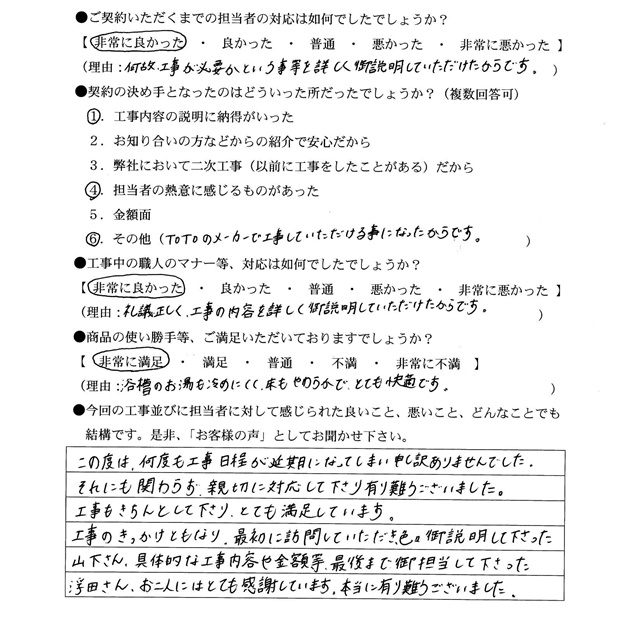 ●ご契約いただくまでの担当者の対応は如何でしたでしょうか？
【 非常に良かった ・ 良かった ・ 普通 ・ 悪かった ・ 非常に悪かった 】
(理由：何故、工事が必要かという事等を詳しく御説明していただけたからです。 )
●契約の決め手となったのはどういった所だったでしょうか？（複数回答可）
①．工事内容の説明に納得がいった
２．お知り合いの方などからの紹介で安心だから
３．弊社において二次工事（以前に工事をしたことがある）だから
④．担当者の熱意に感じるものがあった
５．金額面
⑥．その他（TOTOのメーカーで工事していただける事になったからです。 ）
●工事中の職人のマナー等、対応は如何でしたでしょうか？
【 非常に良かった ・ 良かった ・ 普通 ・ 悪かった ・ 非常に悪かった 】
(理由：礼議正しく、工事の内容を詳しく御説明していただけたからです。 )
●商品の使い勝手等、ご満足いただいておりますでしょうか？
【 非常に満足 ・ 満足 ・ 普通 ・ 不満 ・ 非常に不満 】
(理由：浴槽のお湯も冷めにくく、床もやわらかで、とても快適です。 )
●今回の工事並びに担当者に対して感じられた良いこと、悪いこと、どんなことでも
結構です。是非、「お客様の声」としてお聞かせ下さい。
この度は、何度も工事日程が延期になってしまい申し訳ありませんでした。
それにも関わらず、親切に対応して下さり有り難うございました。
工事もきちんとして下さり、とても満足しています。
工事のきっかけともなり、最初に訪問していただき色々御説明して下さった
山下さん、具体的な工事内容や金額等、最後まで御担当して下さった
浮田さん、お二人にはとても感謝しています。本当に有り難うございました。